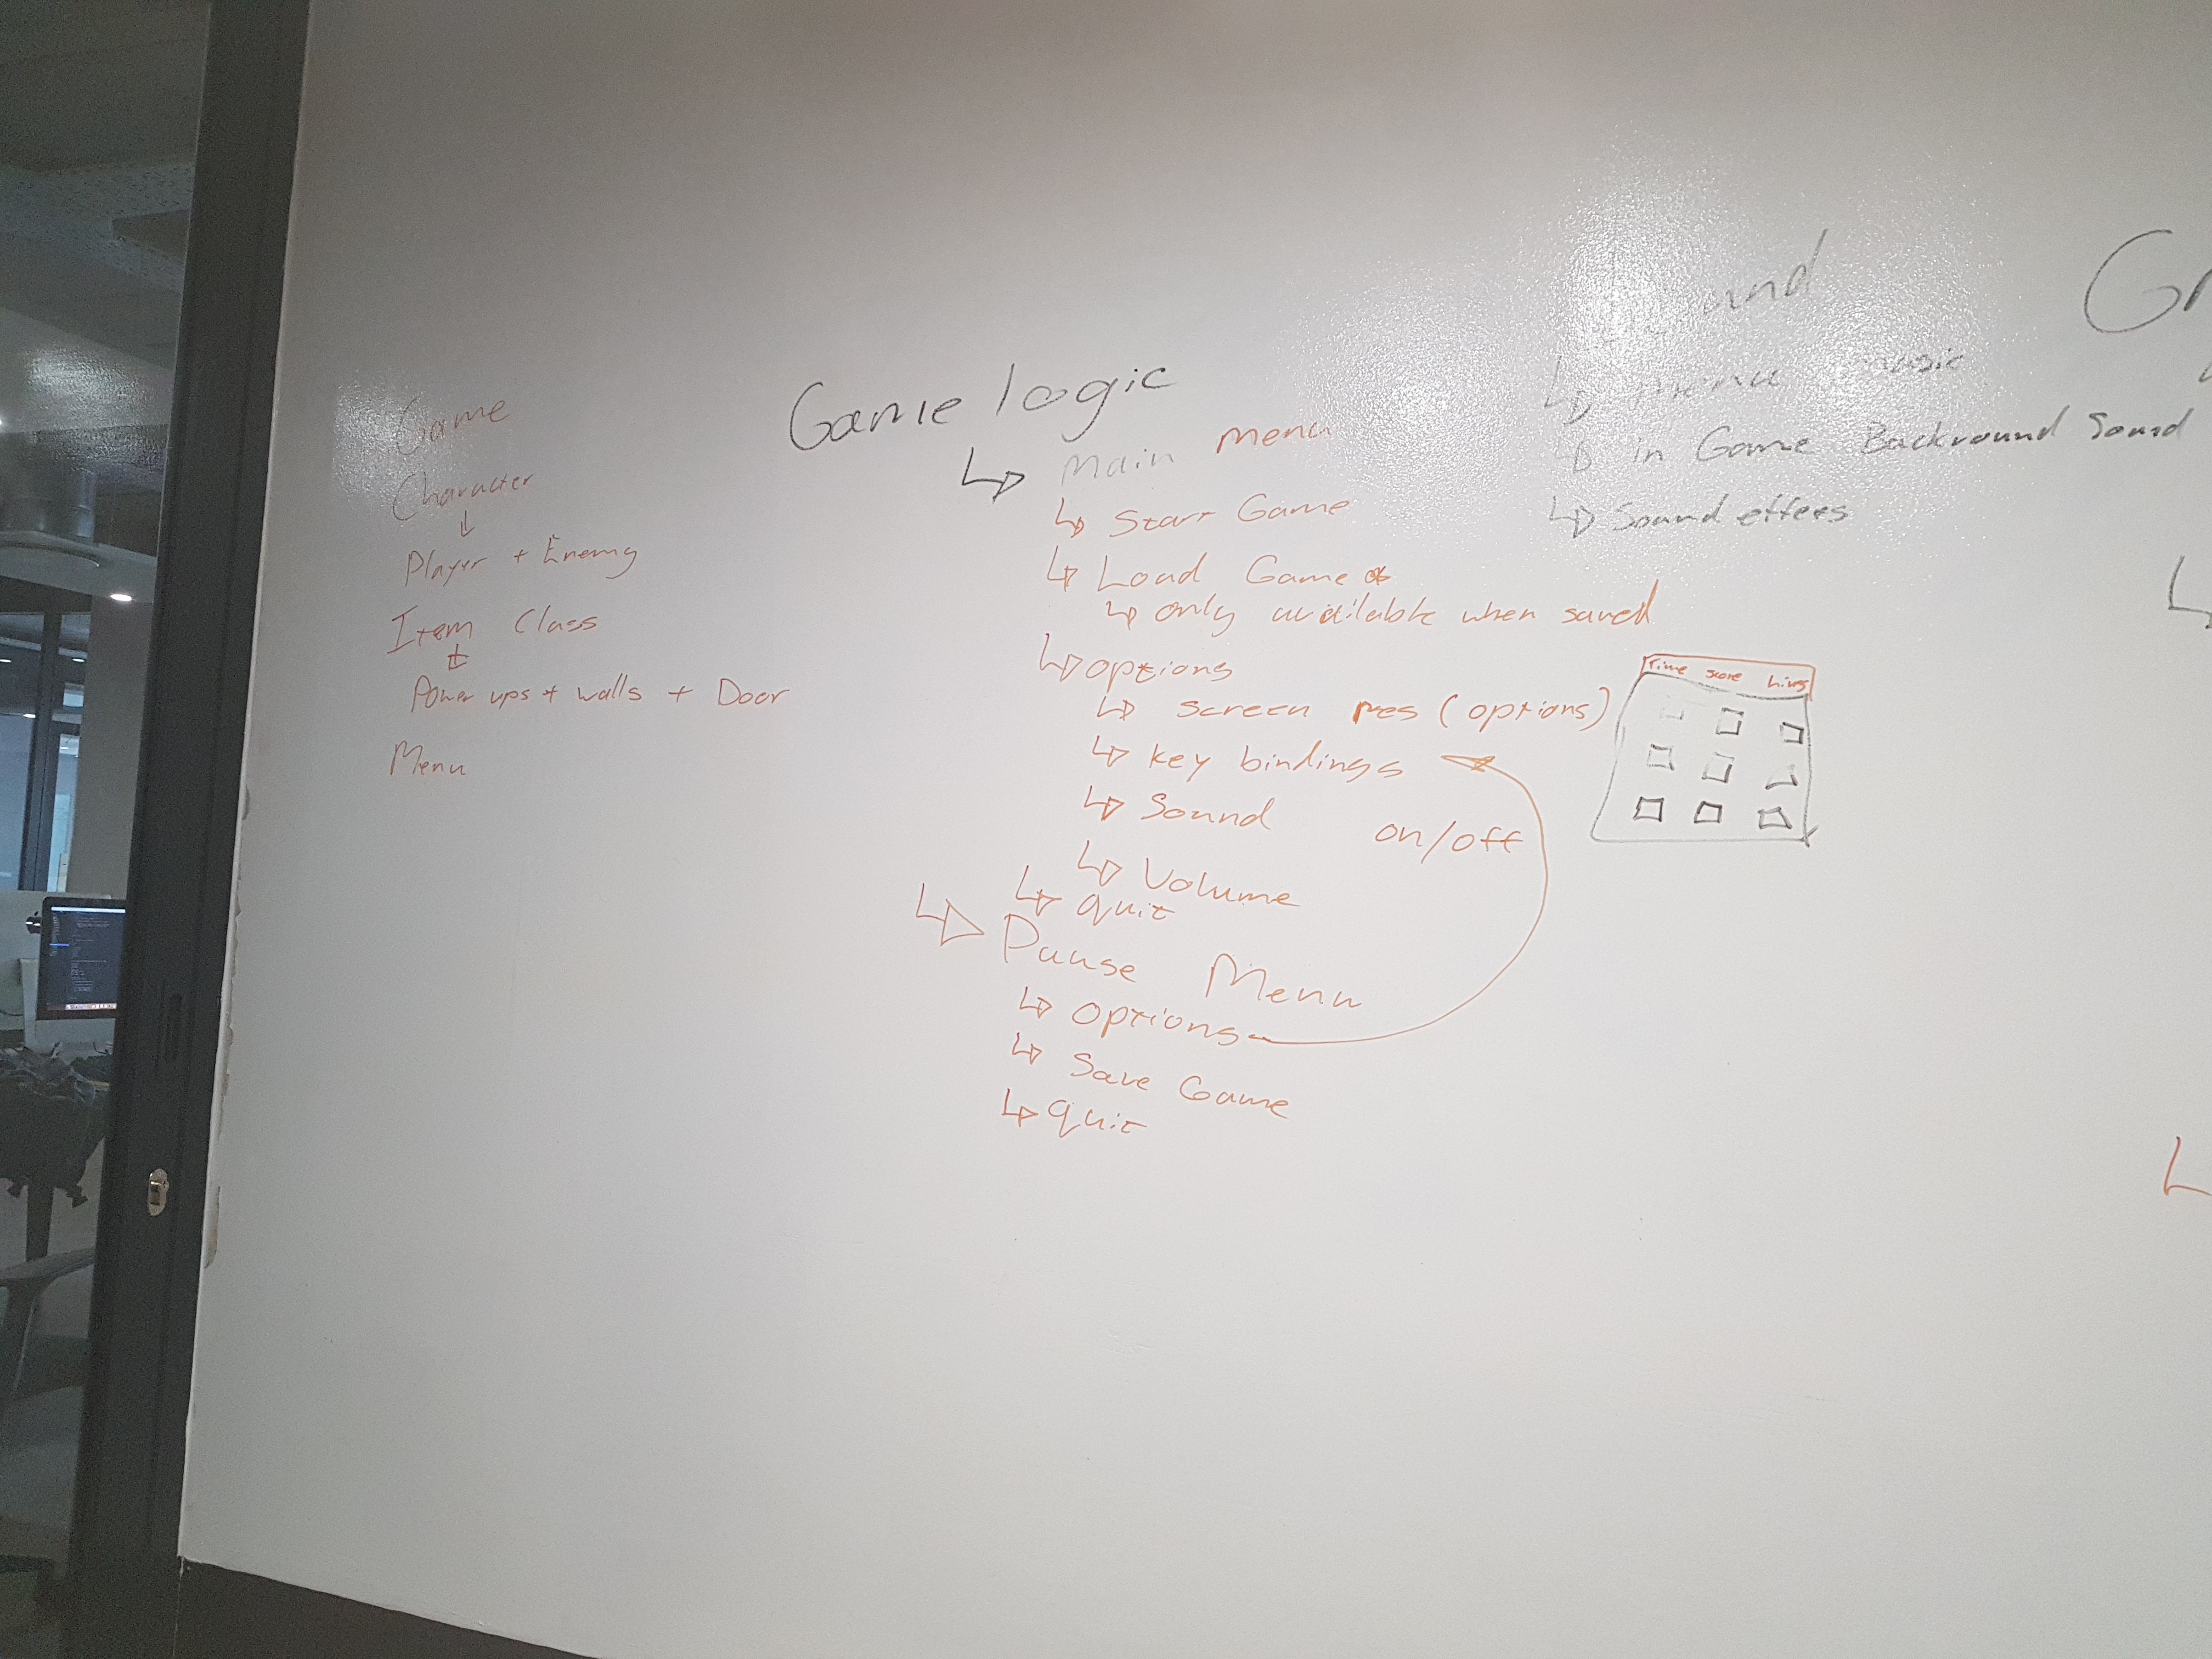 Game
Character
Player + Enemy
Item Class
Power ups + walls + Door
Menu
Game logic
Main menu
Start Game
Load Game *
only available when saved
options
screen res (options)
key bindings
Sound on/off
Volume
quit
Pause Menu
options
Save Game
quit
Time score Lives
Sound
menu music
in Game Backround Sound
Sound effects